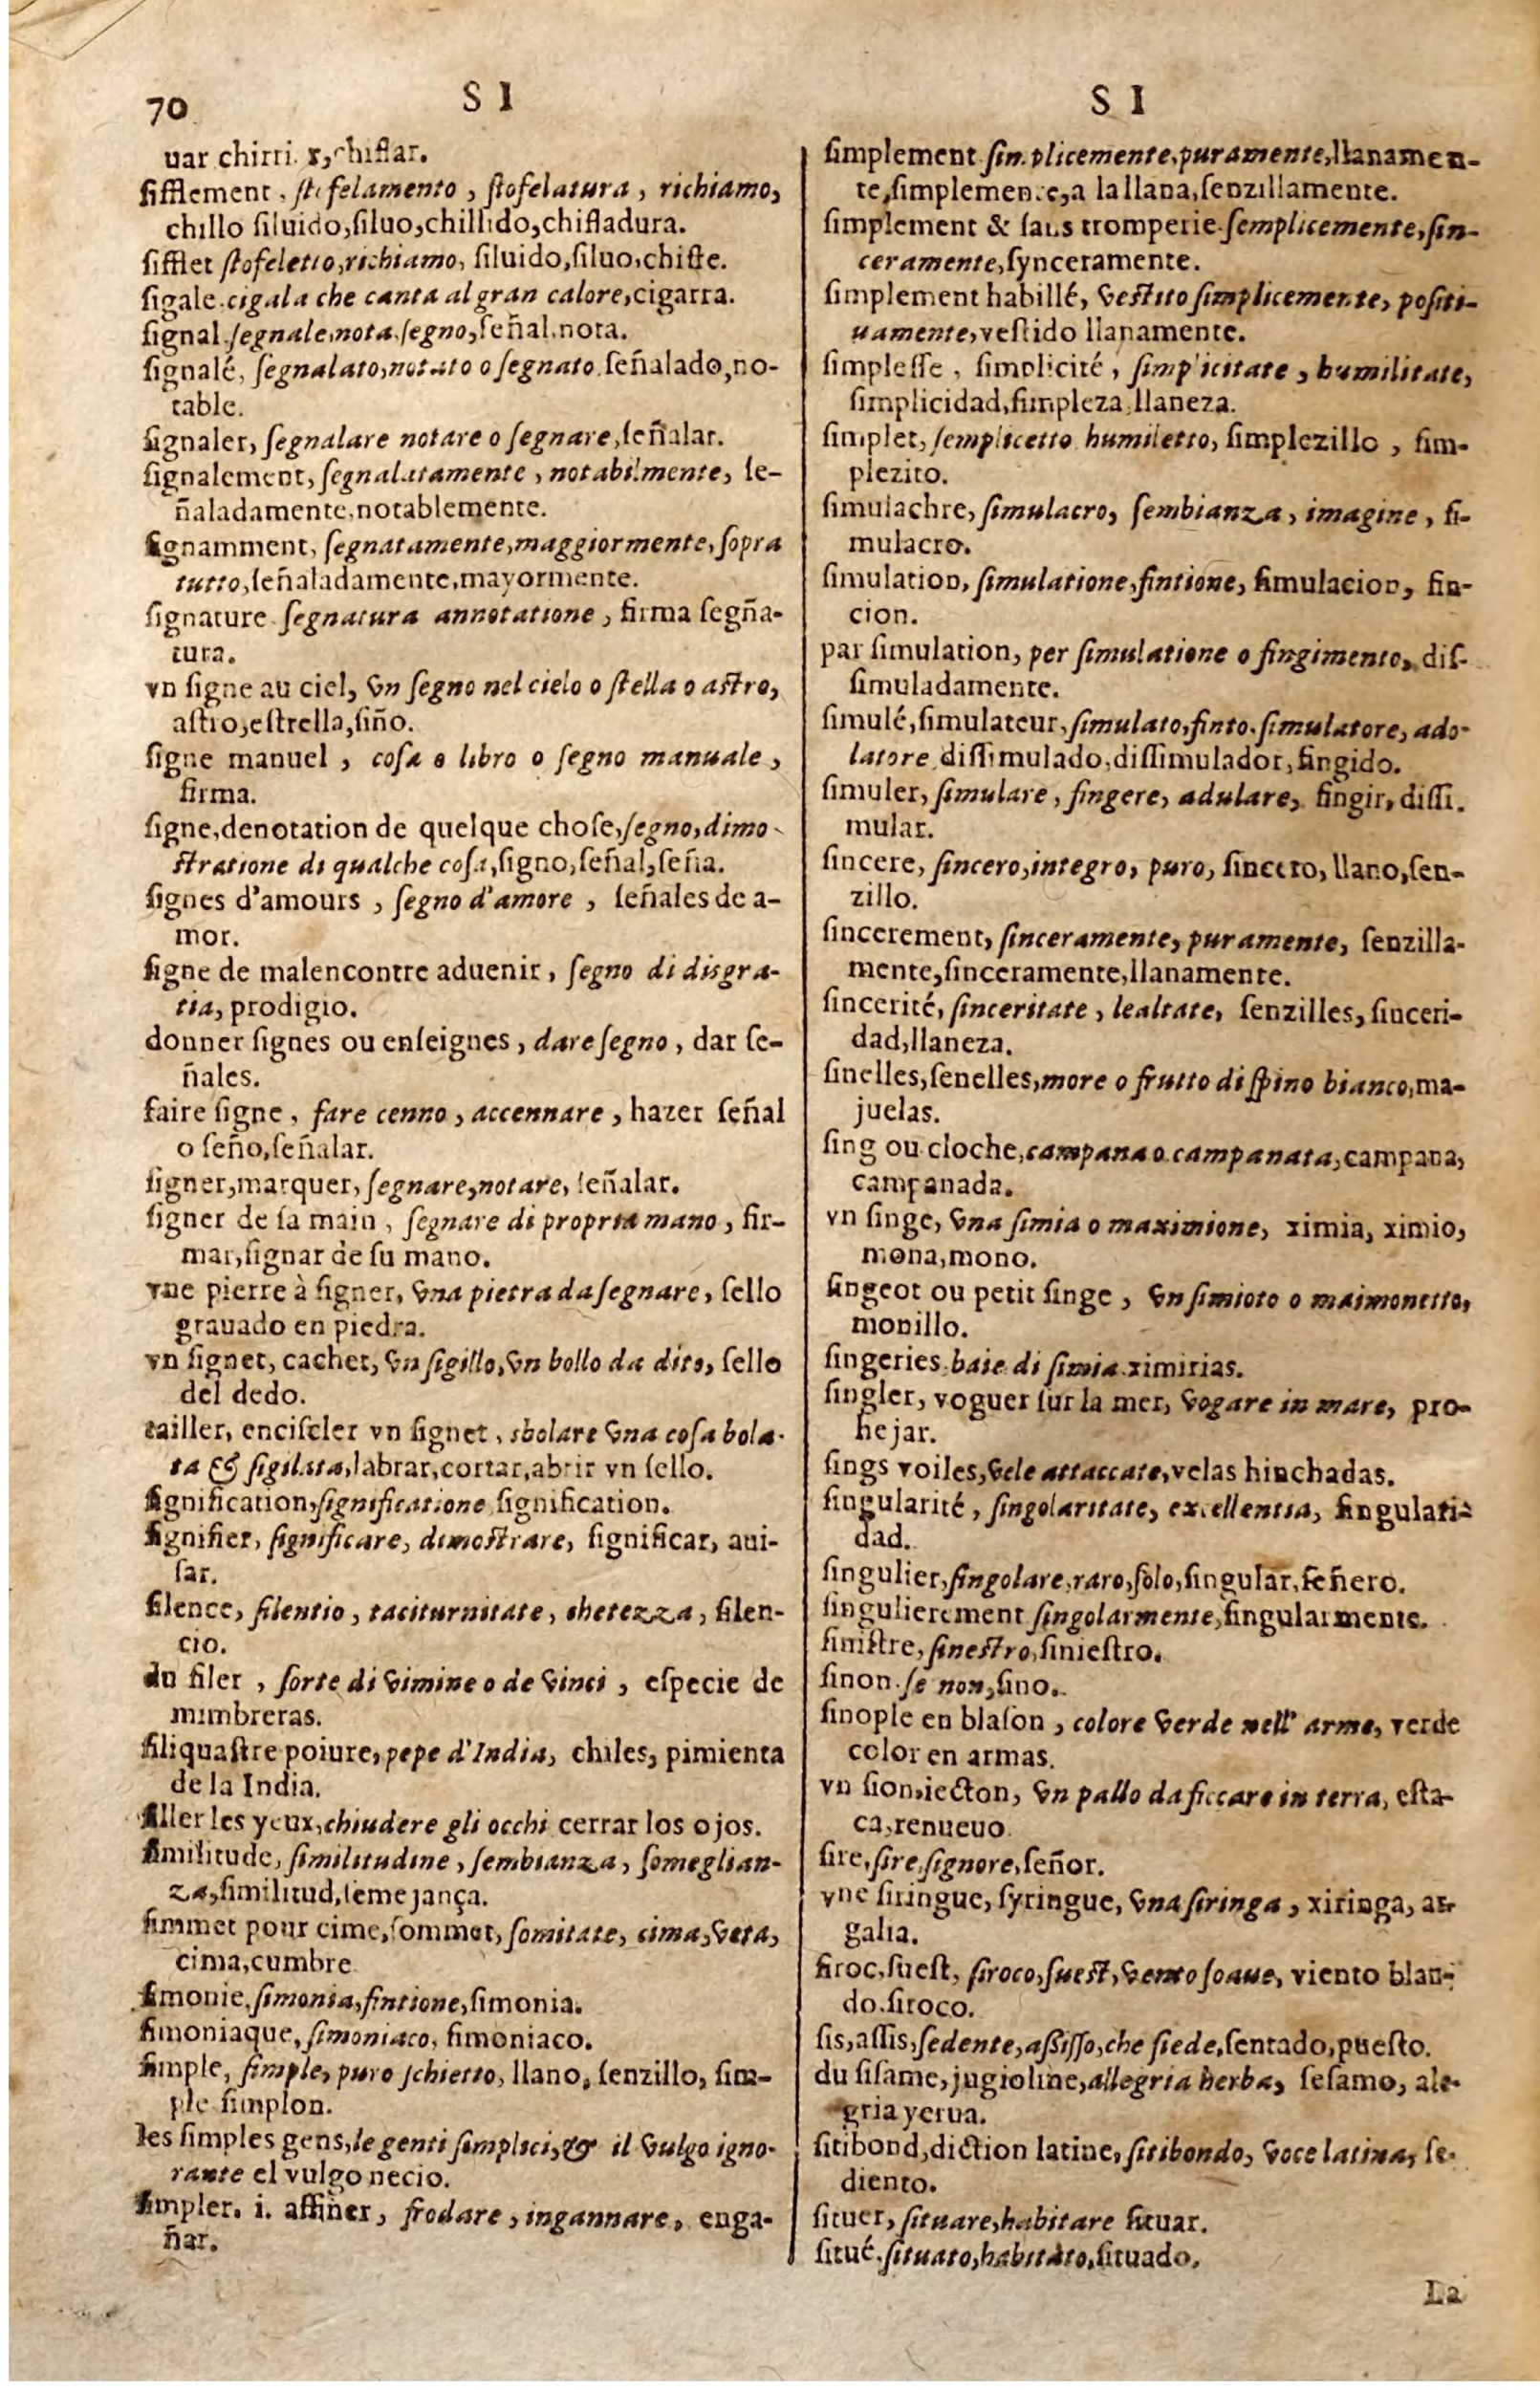 70
S I
uar chirri. r, chiflar.
ſifflement, ſtofelamento, ſtofelatura, richiamo,
chillo ſiluido,ſiluo,chillido,chifladura.
ſifflet ſtofeletto,richiamo, ſiluido,ſiluo,chifle.
ſigale.cigala che canta al gran calore,cigarra.
ſignal.ſegnale,nota.ſegno,ſeñal.nota.
ſignalé, ſegnalato,notato o ſegnato.ſeñalado,no-
table.
ſignaler, ſegnalare notare o ſegnare,ſeñalar.
ſignalement, ſegnalatamente, notabilmente, ſe-
ñaladamente,notablemente.
ſignamment, ſegnatamente,maggiormente,ſopra
tutto,ſeñaladamente,mayormente.
ſignature.ſegnatura annotatione, firma ſegña-
tura.
vn ſigne au ciel, vn ſegno nel cielo o ſtella o aſtro,
aſtro,eſtrella,ſiño.
ſigne manuel, coſa o libro o ſegno manuale,
firma.
ſigne,denotation de quelque choſe,ſegno,dimo-
ſtratione di qualche coſa,ſigno,ſeñal,ſeña.
ſignes d'amours, ſegno d'amore, ſeñales de a-
mor.
ſigne de malencontre aduenir, ſegno di disgra-
tia, prodigio.
donner ſignes ou enſeignes, dare ſegno, dar ſe-
ñales.
faire ſigne, fare cenno, accennare, hazer ſeñal
o ſeño,ſeñalar.
ſigner,marquer, ſegnare,notare, ſeñalar.
ſigner de ſa main, ſegnare di propria mano, fir-
mar,ſignar de ſu mano.
vne pierre à ſigner, vna pietra da ſegnare, ſello
grauado en piedra.
vn ſignet, cachet, vn ſigillo,vn bollo da dito, ſello
del dedo.
tailler, enciſeler vn ſignet, sbolare vna coſa bola-
ta & ſigilata,labrar,cortar,abrir vn ſello.
ſignification,ſignificatione,ſignification.
ſignifier, ſignificare, dimoſtrare, ſignificar, aui-
ſar.
ſilence, ſilentio, taciturnitate, chetezza, ſilen-
cio.
du ſiler, ſorte di vimine o de vinci, eſpecie de
mimbreras.
ſiliquaſtre poiure,pepe d'India, chiles, pimienta
de la India.
ſiller les yeux,chiudere gli occhi cerrar los ojos.
ſimilitude, ſimilitudine, ſembianza, ſomeglian-
za,ſimilitud,ſemejança.
ſimmet pour cime,ſommet, ſomitate, cima,veta,
cima,cumbre
ſimonie.ſimonia,fintione,ſimonia.
ſimoniaque, ſimoniaco, ſimoniaco.
ſimple, ſimple, puro ſchietto, llano, ſenzillo, ſim-
ple ſimplon.
les ſimples gens,le genti ſimplici,& il vulgo igno-
rante el vulgo necio.
ſimpler. i. affiner, frodare, ingannare, enga-
ñar.
S I
ſimplement ſimplicemente,puramente,llanamen-
te,ſimplemente,a la llana,ſenzillamente.
ſimplement & ſans tromperie.ſemplicemente,ſin-
ceramente,ſynceramente.
ſimplement habillé, veſtito ſimplicemente, poſiti-
uamente,veſtido llanamente.
ſimpleſſe, ſimplicité, ſimplicitate, humilitate,
ſimplicidad,ſimpleza,llaneza.
ſimplet,ſemplicetto humiletto, ſimplezillo, ſim-
plezito.
ſimulachre, ſimulacro, ſembianza, imagine, ſi-
mulacro.
ſimulation, ſimulatione,fintione, ſimulacion, fin-
cion.
par ſimulation, per ſimulatione o fingimento, diſ-
ſimuladamente.
ſimulé,ſimulateur,ſimulato,finto.ſimulatore, ado-
latore.diſſimulado,diſſimulador,fingido.
ſimuler, ſimulare, fingere, adulare, fingir, diſſi.
mular.
ſincere, ſincero,integro, puro, ſincero, llano,ſen-
zillo.
ſincerement, ſinceramente, puramente, ſenzilla-
mente,ſinceramente,llanamente.
ſincerité, ſinceritate, lealtate, ſenzilles, ſinceri-
dad,llaneza.
ſinelles,ſenelles,more o frutto di ſpino bianco,ma-
juelas.
ſing ou cloche,campana o campanata,campana,
campanada.
vn ſinge, vna ſimia o maximione, ximia, ximio,
mona,mono.
ſingeot ou petit ſinge, vn ſimioto o maimonetto,
monillo.
ſingeries.baie di ſimia.ximirias.
ſingler, voguer ſur la mer, vogare in mare, pro-
hejar.
ſings voiles,vele attaccate,velas hinchadas.
ſingularité, ſingolaritate, excellentia, ſingulari-
dad.
ſingulier,ſingolare,raro,ſolo,ſingular,ſeñero.
ſingulierement ſingolarmente,ſingularmente.
ſiniſtre, ſineſtro,ſinieſtro.
ſinon.ſe non,ſino.
ſinople en blaſon, colore verde nell' arme, verde
color en armas.
vn ſion,iecton, vn pallo da ficcare in terra, eſta-
ca,renueuo.
ſire,ſire,ſignore,ſeñor.
vne ſiringue, ſyringue, vna ſiringa, xiringa, ar-
galia.
ſiroc,ſueſt, ſiroco,ſueſt,vento ſoaue, viento blan-
do.ſiroco.
ſis,aſſis,ſedente,aßiſſo,che ſiede,ſentado,pueſto.
du ſiſame,jugioline,allegria herba, ſeſamo, ale-
gria yerua.
ſitibond,diction latine,ſitibondo, voce latina, ſe-
diento.
ſituer, ſituare,habitare ſituar.
ſitué.ſituato,habitato,ſituado.
La